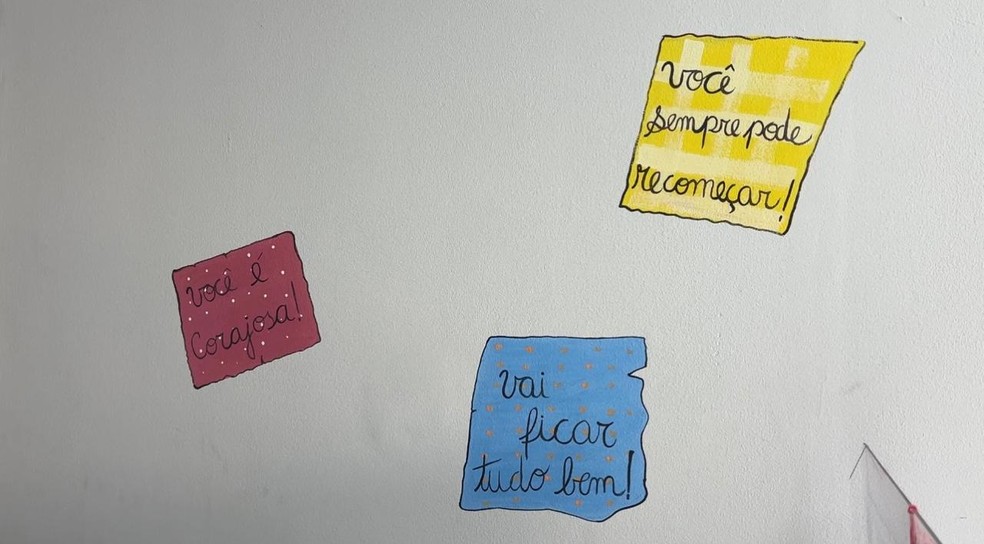 você
sempre pode
recomeçar!
você é
corajosa!
vai
ficar
tudo bem!